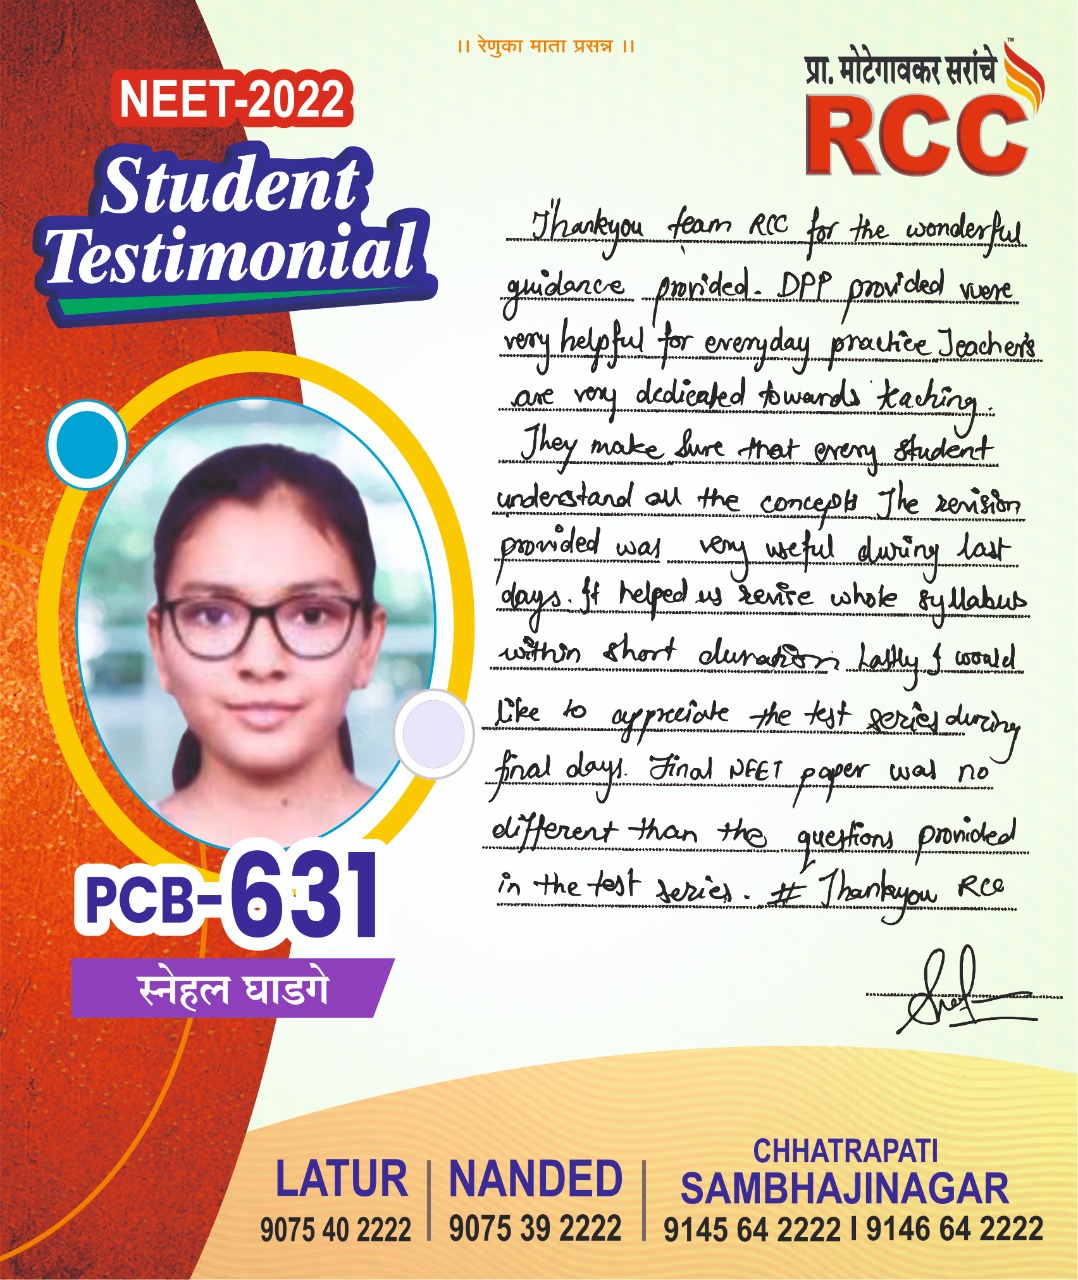 ।। रेणुका माता प्रसन्न ।।
प्रा. मोटेगावकर सरांचे
TM
RCC
NEET-2022
Student
Testimonial
Thankyou team RCC for the wonderful
guidance provided. DPP provided were
very helpful for everyday practice Teachers
are very dedicated towards teaching.
They make sure that every student
understand all the concepts The revision
provided was very useful during last
days. It helped us revise whole syllabus
within short duration Lastly I would
like to apprciate the test series during
final days. Final NEET paper was no
different than the questions provided
in the test series. # Thankyou RCC
PCB-631
स्नेहल घाडगे
LATUR
9075 40 2222
NANDED
9075 39 2222
CHHATRAPATI
SAMBHAJINAGAR
9145 64 2222 I 9146 64 2222